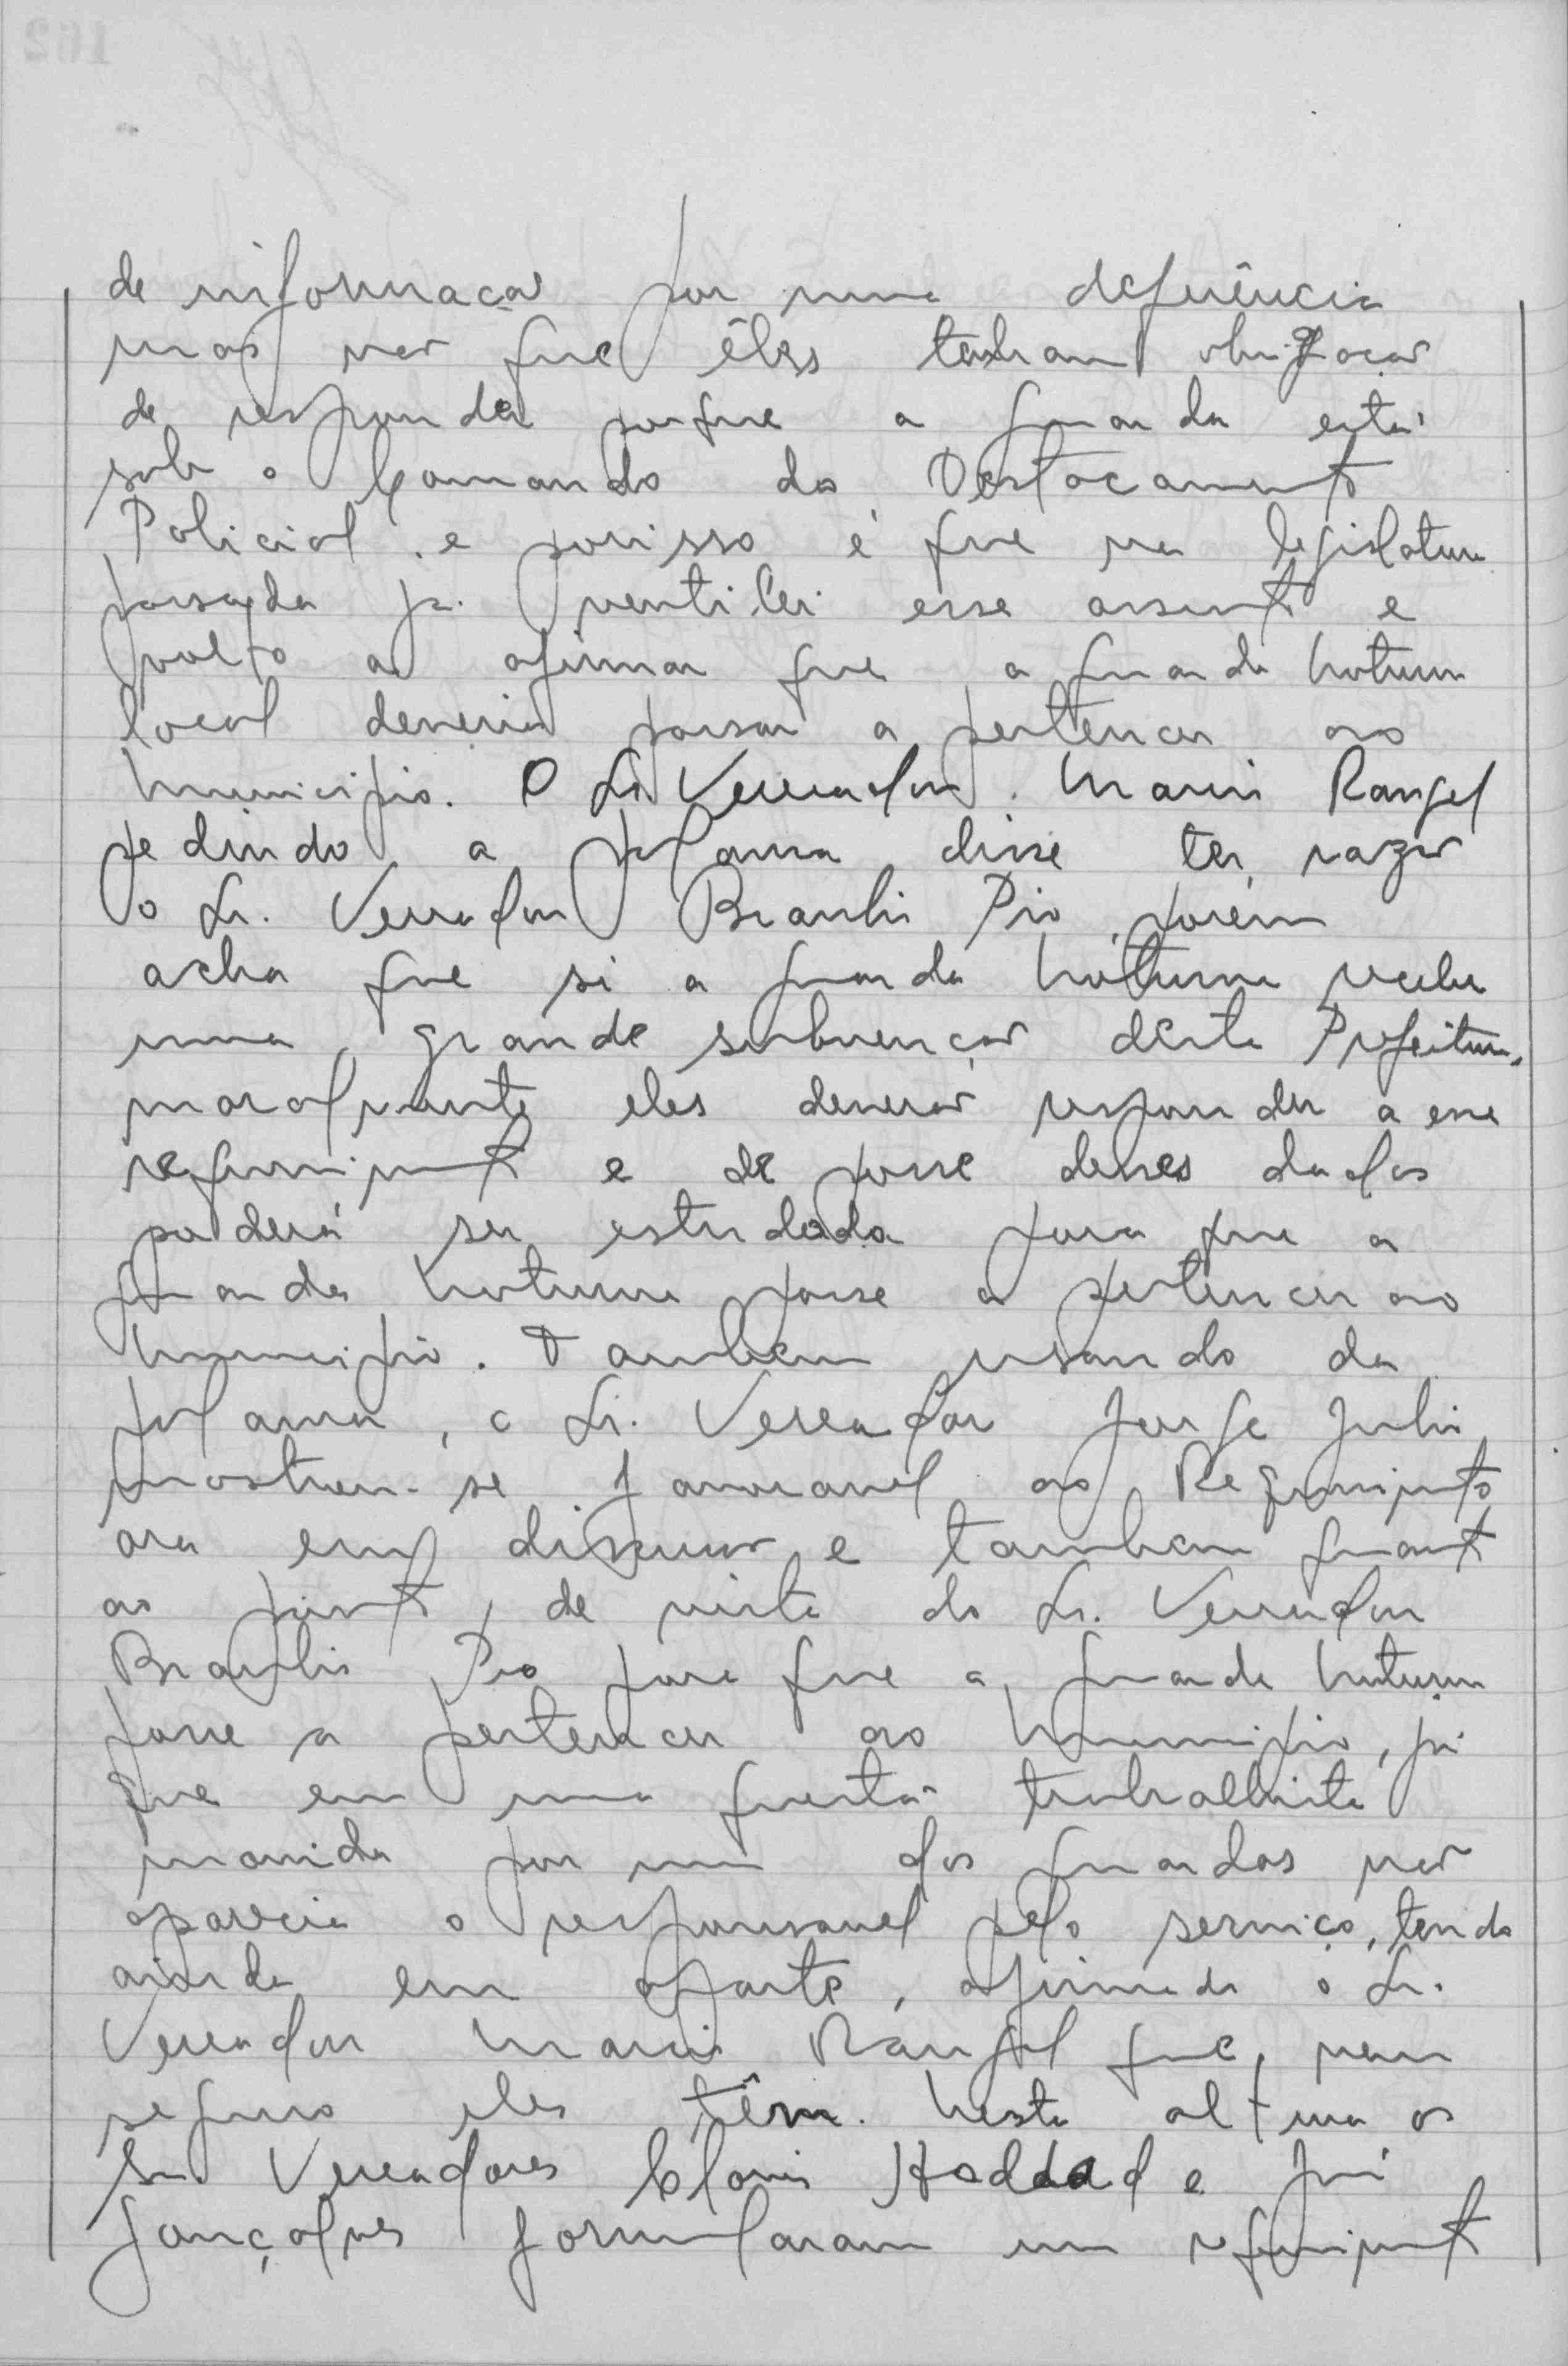 de informação por uma deferência
mas não que êles tenham obrigação
de responder porque a guarda está
sob o Comando do Destacamento
Policial, e porisso é que na legislatura
passada já ventilei esse assunto e
volto a afirmar que a guarda Noturna
local deveria passar a pertencer ao
Municipio. O Sr. Vereador Mario Rangel
pedindo a palavra disse ter razão
o Sr. Vereador Braulio Pio, porém
acha que si a guarda Noturna recebe
uma grande subvenção desta Prefeitura,
moralmente eles deverão responder a esse
requerimento e de posse desses dados
poderá ser estudada para que a
guarda Noturna passe a pertencer ao
Municipio. Tambem usando da
palavra, o Sr. Vereador Jorge Julio
mostrou-se favoravel ao Requerimento
ora em discussão e tambem quanto
ao ponto de vista do Sr. Vereador
Braulio Pio para que a guarda Noturna
passe a pertencer ao Municipio, já
que em uma questão trabalhista
movida por um dos guardas não
aparecia o responsavel pelo serviço, tendo
ainda em aparte, afirmado o Sr.
Vereador Mario Rangel que, nem
seguro eles têm. Nesta altura os
Srs Vereadores Clovis Haddad e José
Gonçalves formularam um requerimento